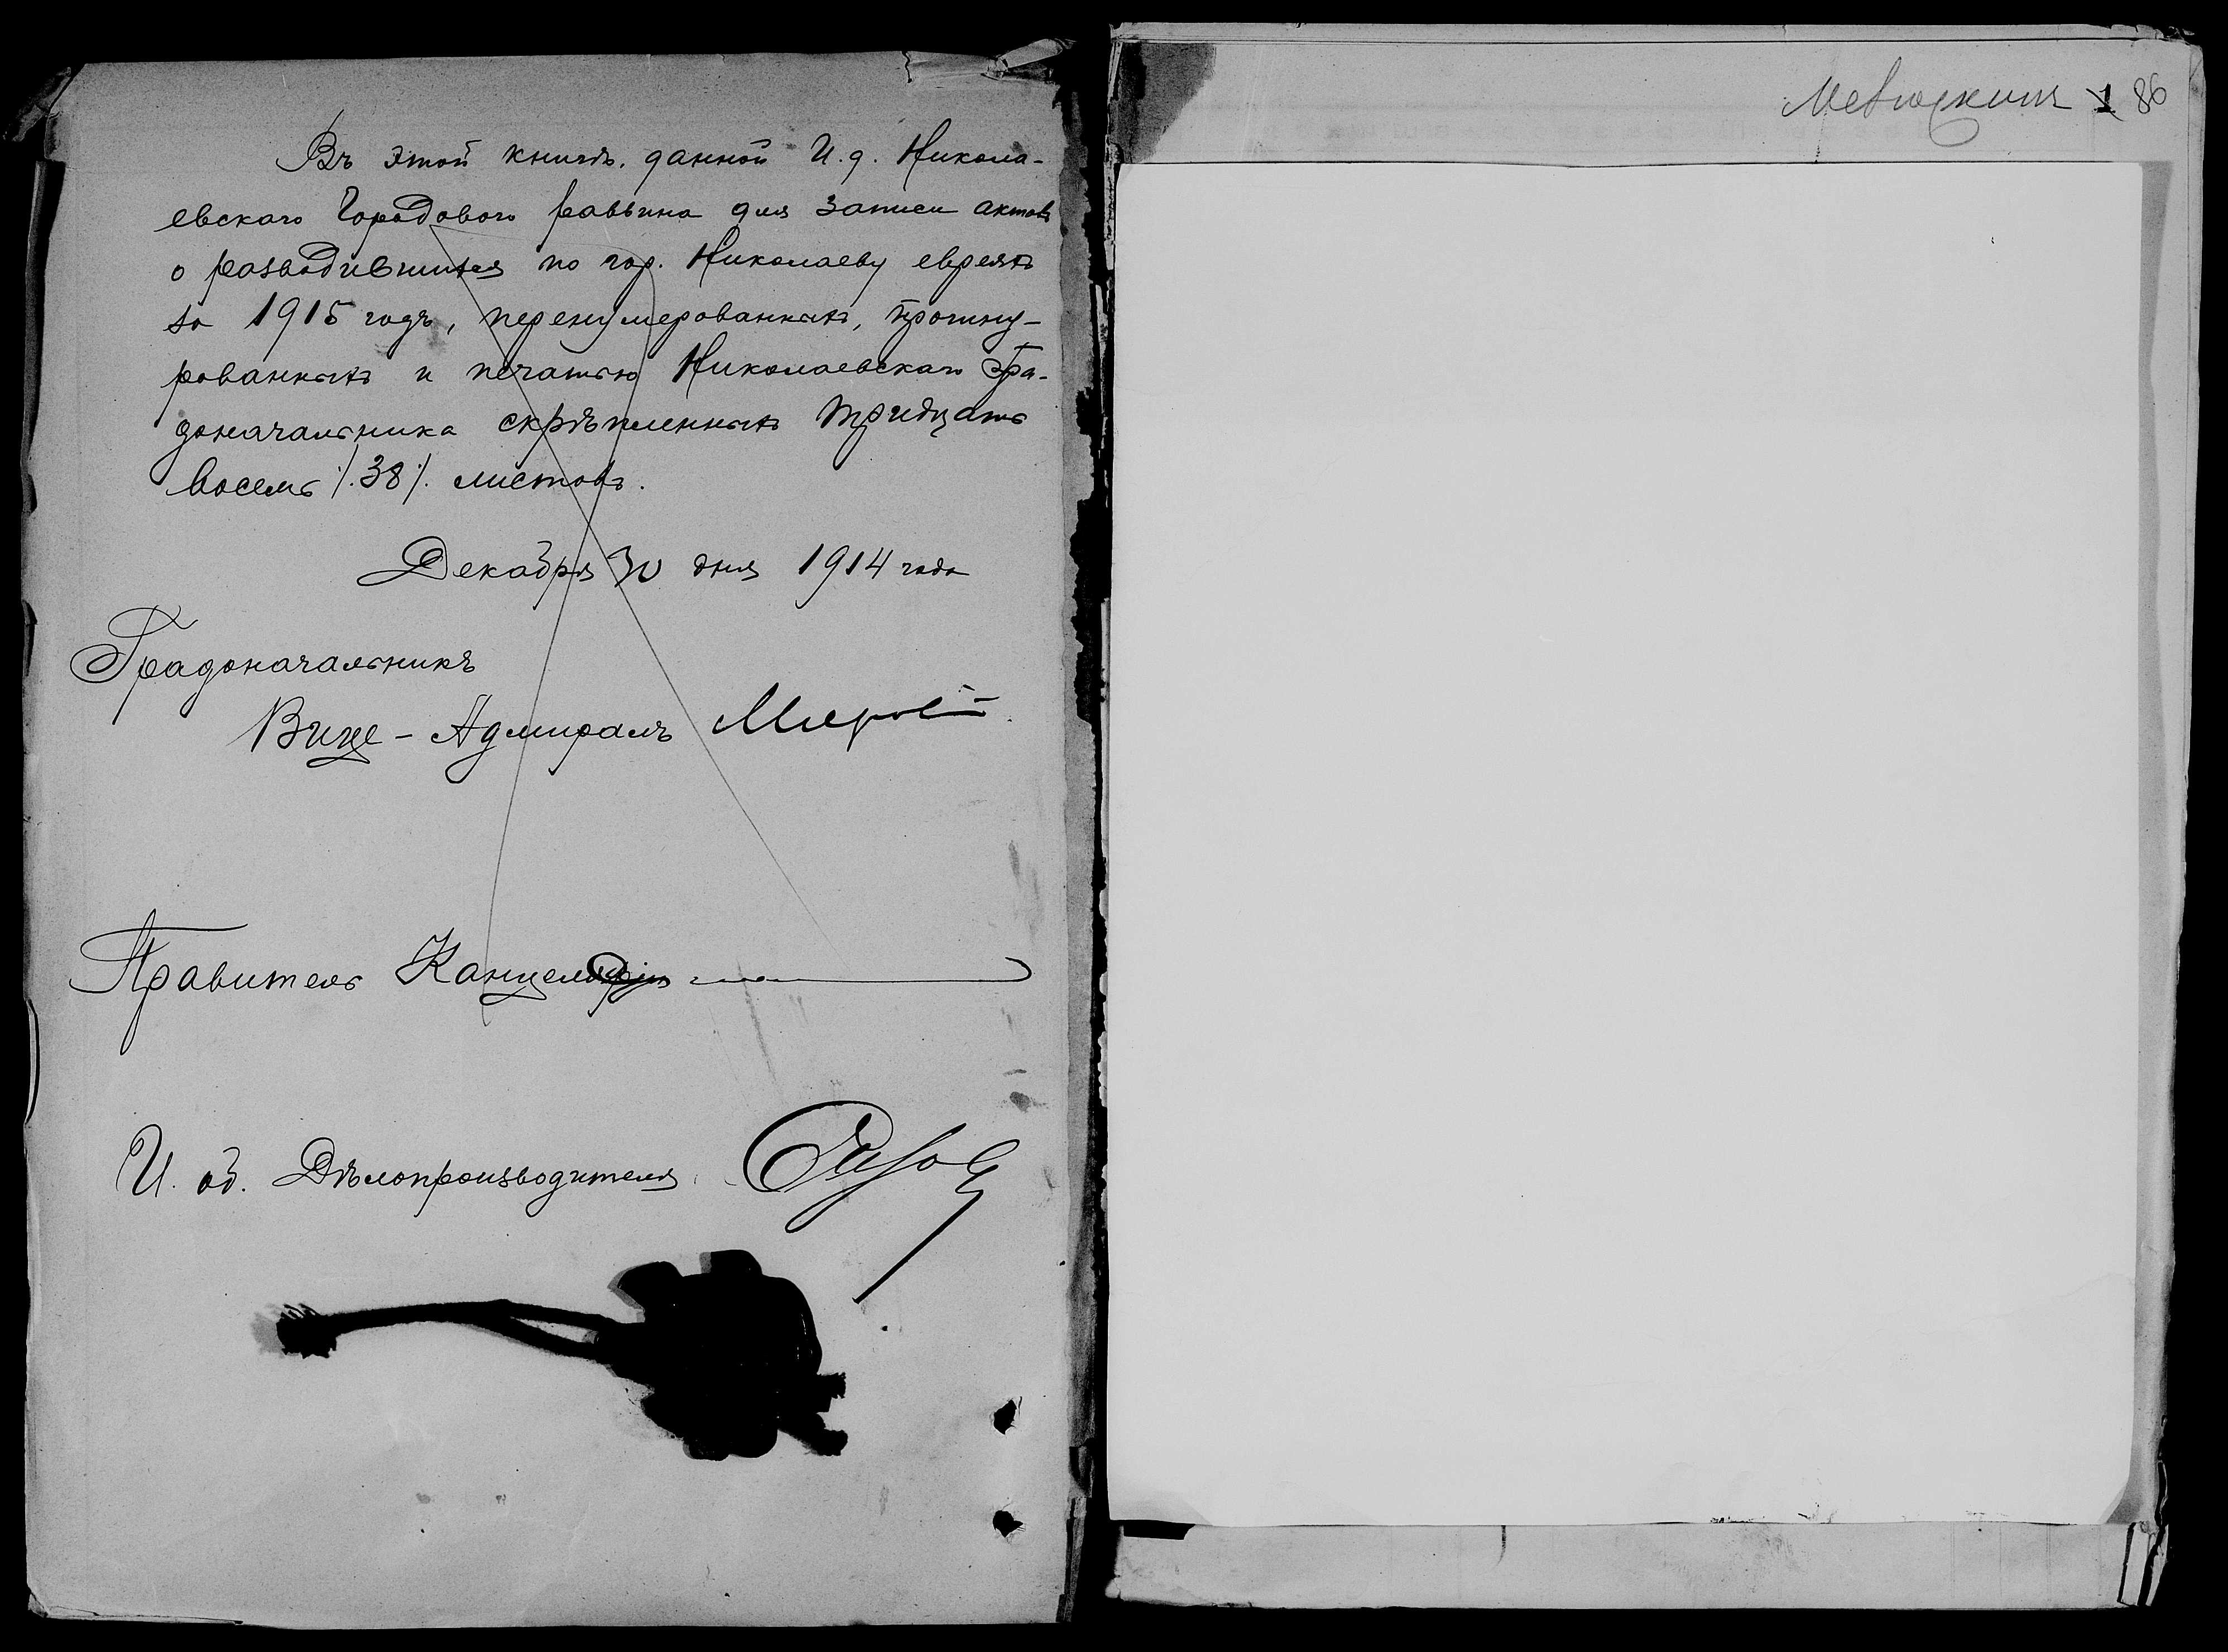 Въ этой книгѣ, данной И. д. Никола-
евскаго Городового раввина для записи актовъ
о разводившихся по гор. Николаеву евреяхъ
за 1915 годъ, перенумерованныхъ, прошну-
рованныхъ и печатью Николаевскаго Гра-
доначальника скрѣпленныхъ тридцать
восемь /.38/. листовъ.
Декабря 30 дня 1914 года
Градоначальникъ
Вице-Адмиралъ
Правитель Канцеляріи
И. об. Дѣлопроизводителя
1 86